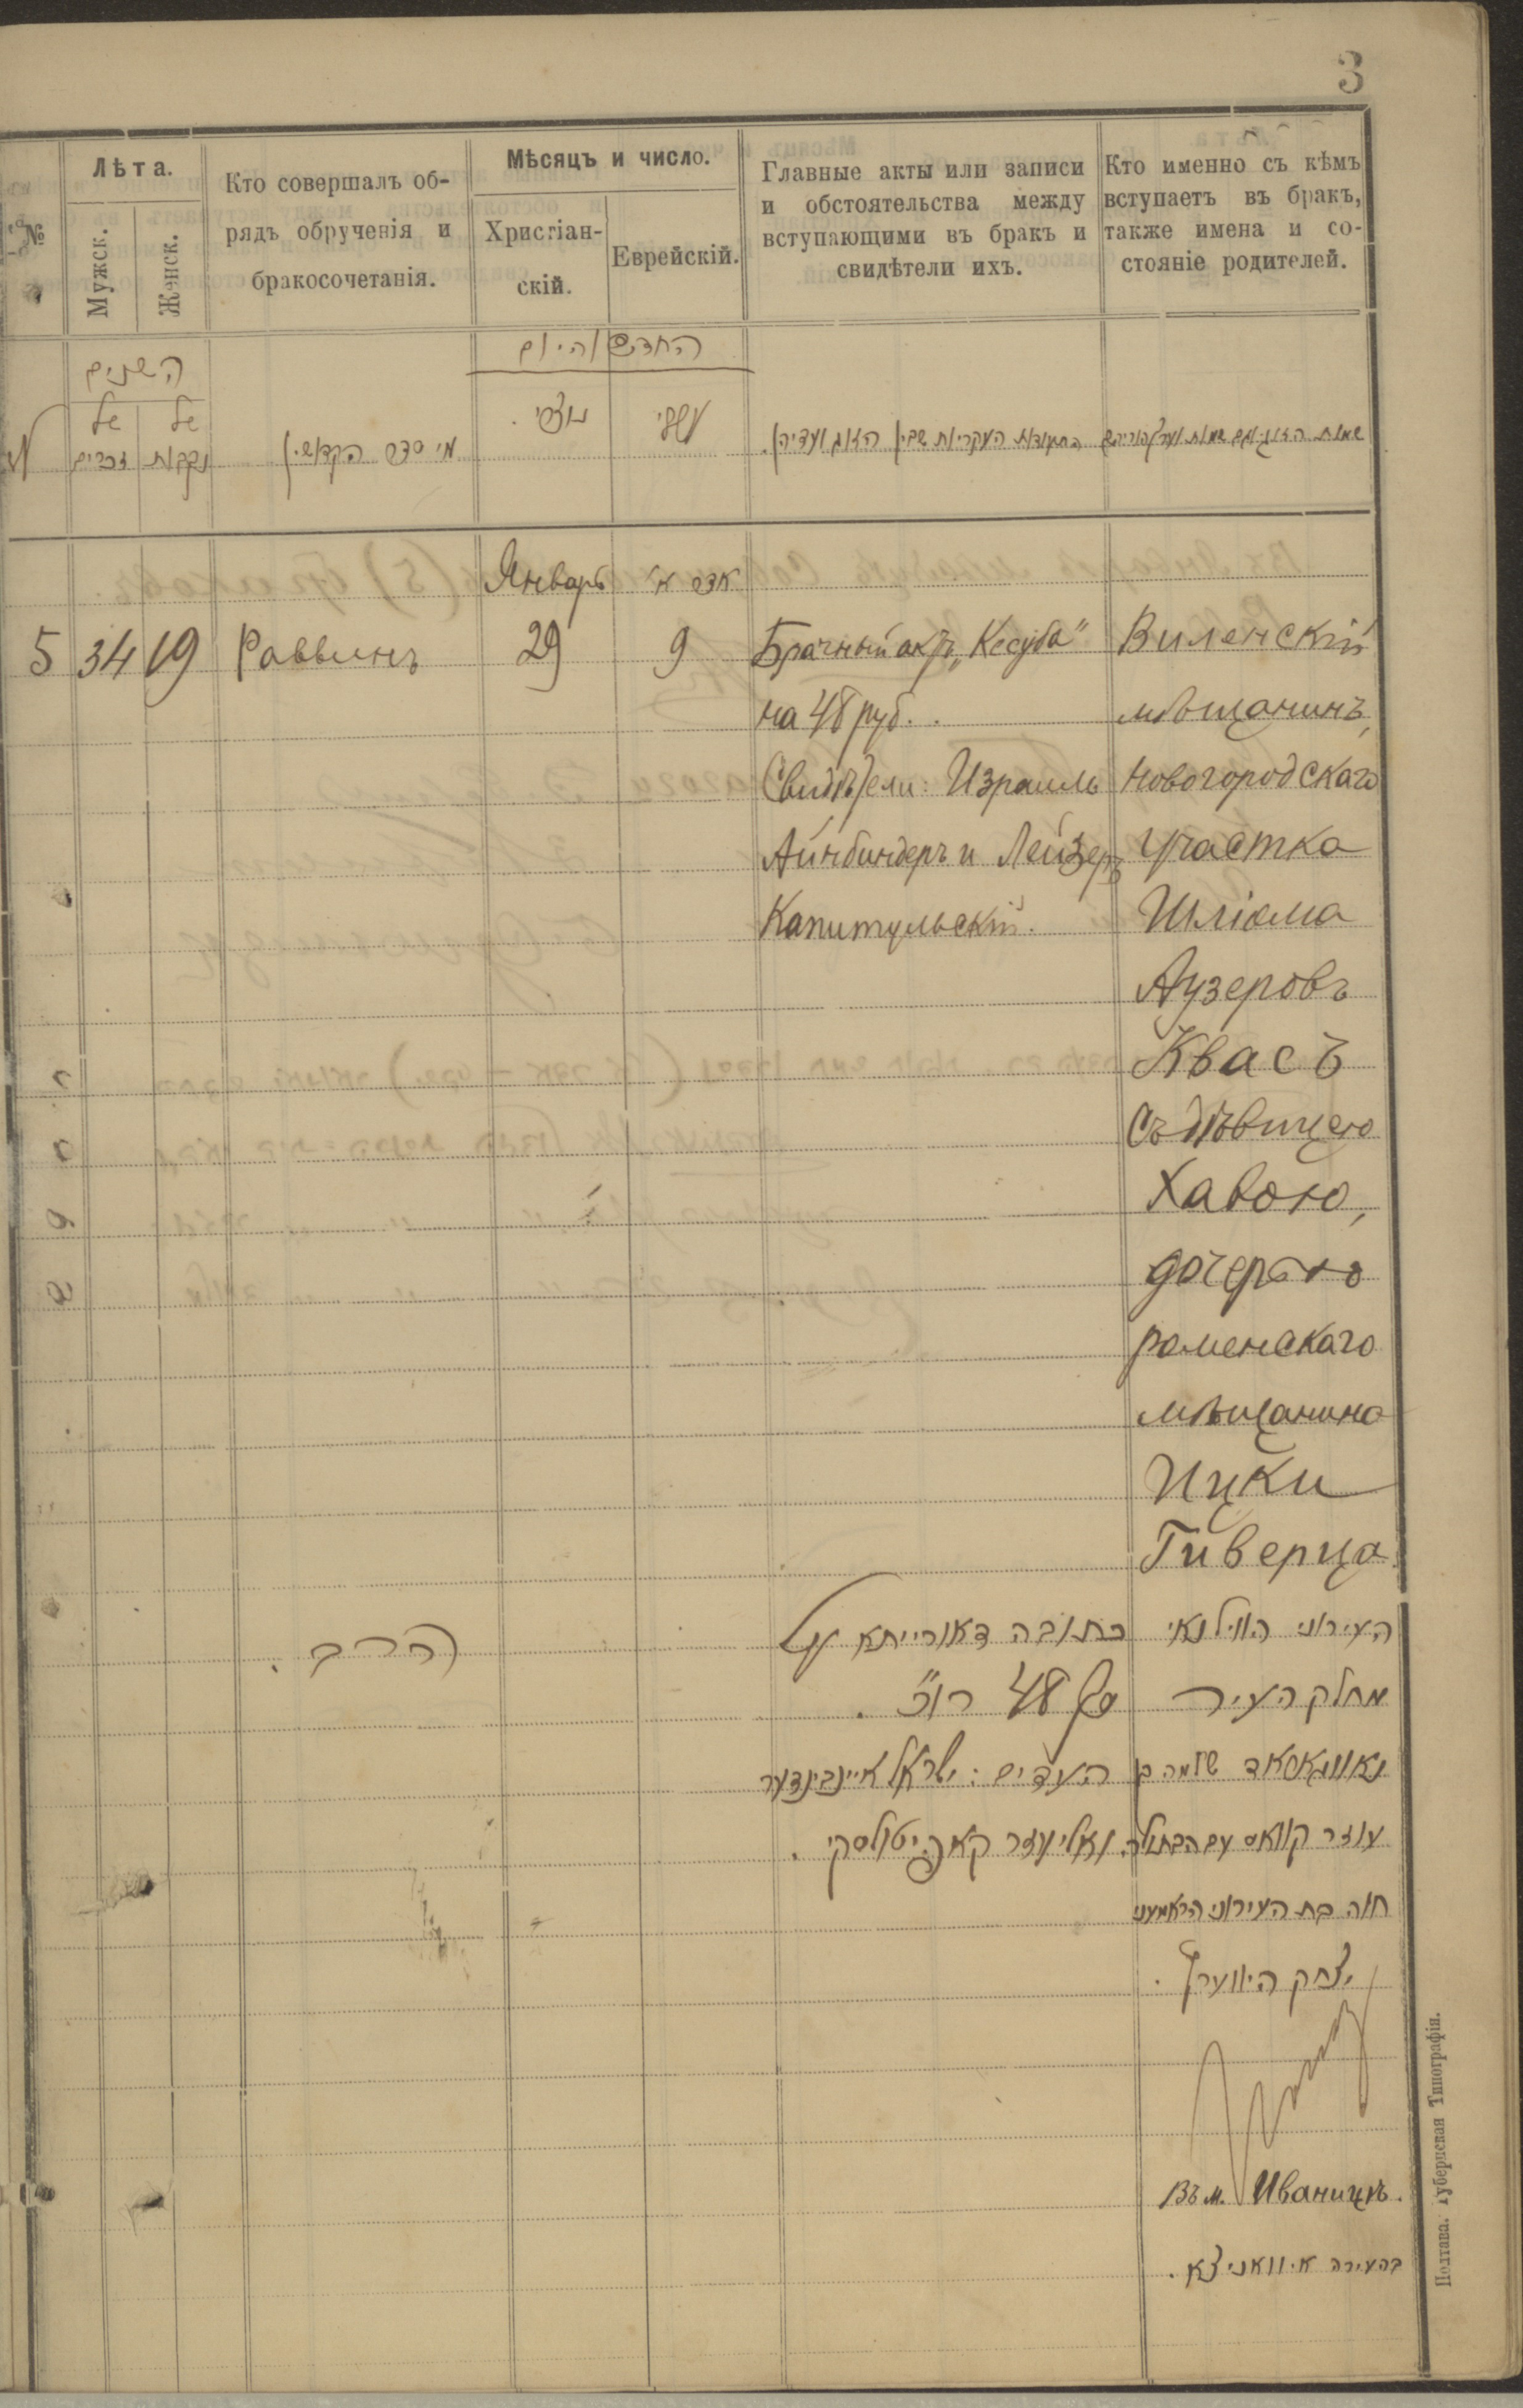 3
№
Лѣта.
Мужск.
Женск.
Кто совершалъ об-
рядъ обрученія и
бракосочетанія.
Мѣсяцъ и число.
Христіан-
скій.
Еврейскій.
Главные акты или записи
и обстоятельства между
вступающими въ бракъ и
свидѣтели ихъ.
Кто именно съ кѣмъ
вступаетъ въ бракъ,
также имена и со-
стояніе родителей.
השנים
של
זכרים
של
נקבות
מי סדר הקדושין
החדש והיום
נוצרי.
עברי
התעודות העקריות שבין הזוג ועדיהן.
שמות הזוג וגם שמות
Январь
אדר א'
5 34 19 Раввинъ 29 9
Брачный актъ „Кесуба"
на 48 руб..
Свидѣтели: Израиль
Айнбиндеръ и Лейзеръ
Капитульскій.
Виленскій
мѣщанинъ,
Новогородскаго
участка
Шліома
Аузеровъ
Квасъ
съ дѣвицею
Хавою,
дочерью
роменскаго
мѣщанина
Ицки
Гиверца
הרב.
כתובה דאורייתא על
סך 48 רו"כ.
העדים: ישראל איינבינדער
ואליעזר קאפיטולסקי.
העירוני הווילנאי
מחלק העיר
שלמה בן
עוזר קוואס עם הבתולה
חוה בת העירוני הראמעני
יצחק היווערץ.
Въ м. Иваницѣ.
בהעירה איוואניצא.
Полтава. Губернская Типографія.